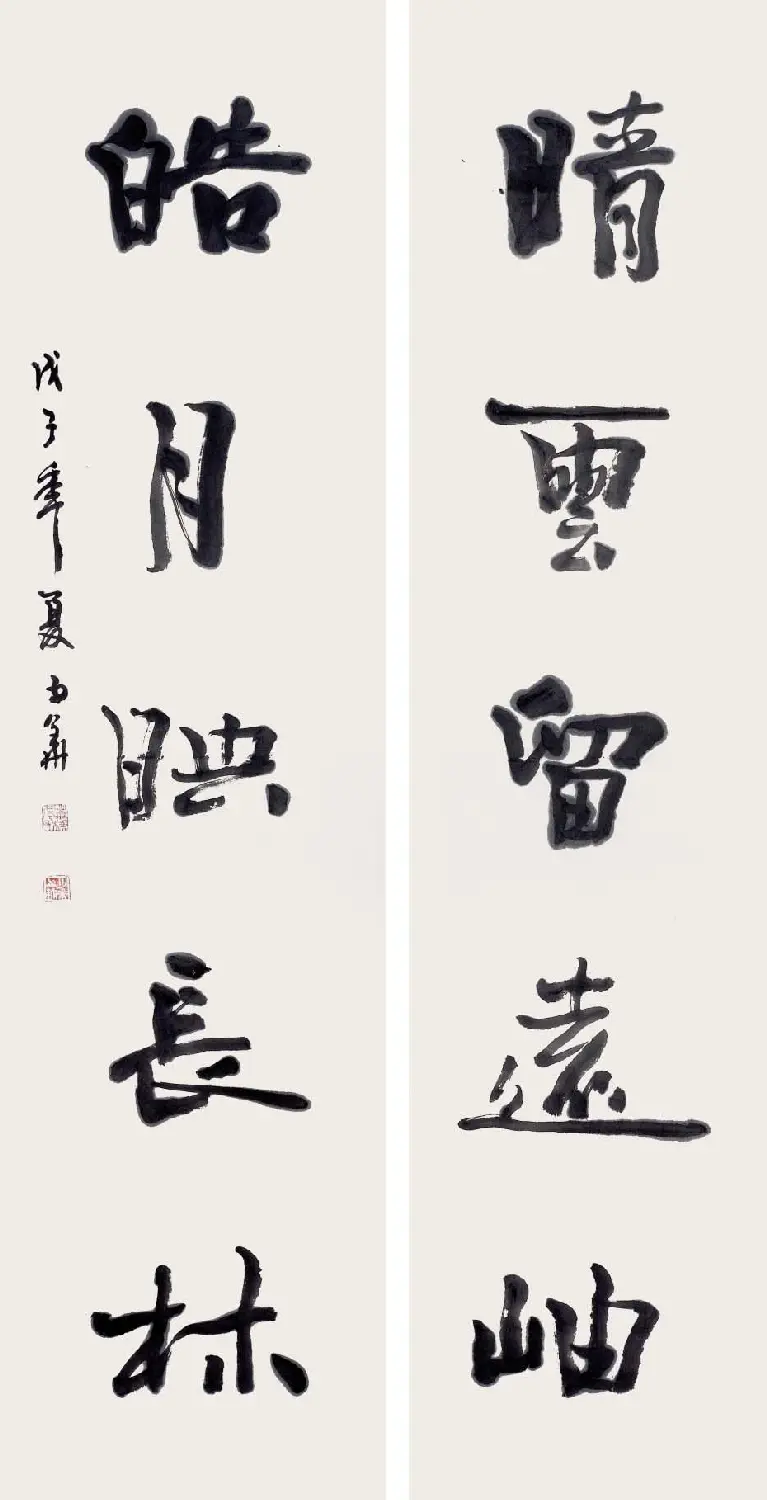 晴雲留遠岫
皓月映長林
戊子年夏